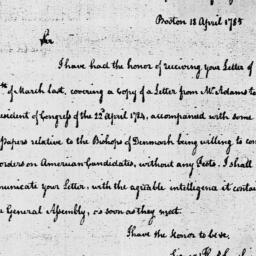 Boston 18 April 1785
Sir
I have had the honor of reciving your Letter of
of March last, covering a Copy of a Letter from Mr Adams to
resident of Congress of the 22d April 1784, accompained with some
papers relative to the Bishops of Denmark being willing to con
orders on American Candidates, without any Tests. I shall
municate your Letter, with the agreable intelligence it contai
General Assembly, as soon as they meet.
I have the Honor to be &c.